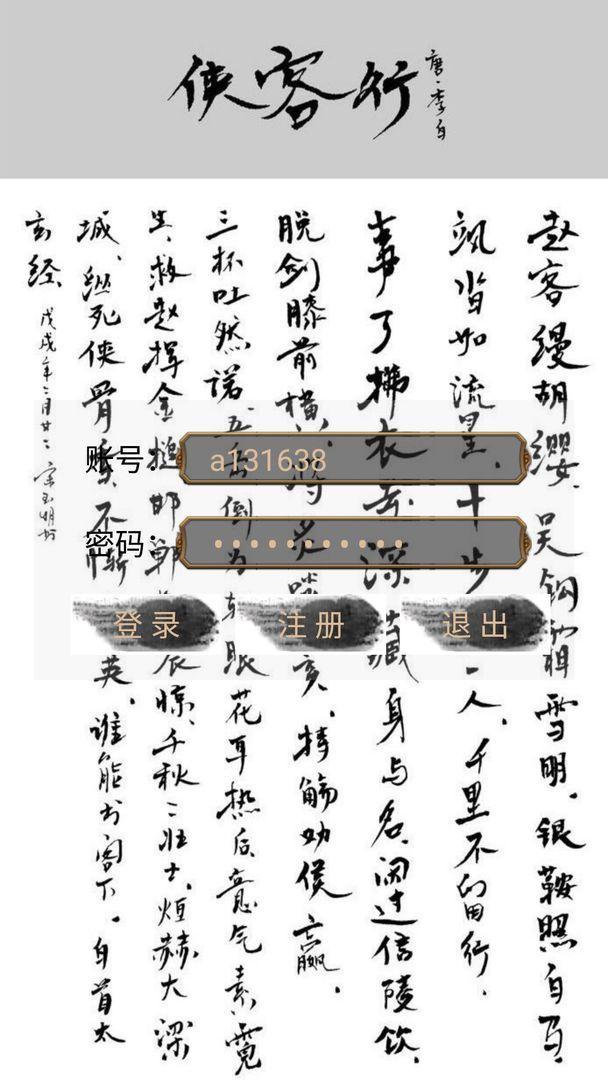 侠客行
唐·李白
赵客缦胡缨。吴钩霜雪明。银鞍照白马。
飒沓如流星。十步一人。千里不留行。
事了拂衣去深藏身与名。闲过信陵饮。
脱剑膝前横。将炙啖亥。持觞劝侯嬴。
三杯吐然诺。五岳倒为轻眼花耳热后意气素霓
生。救赵挥金槌邯郸震惊。千秋二壮士。烜赫大梁
城。纵死侠骨香不惭英。谁能书阁下。白首太
玄经。
戊戌年二月廿二
账号：
a131638
密码：
登录
注册
退出